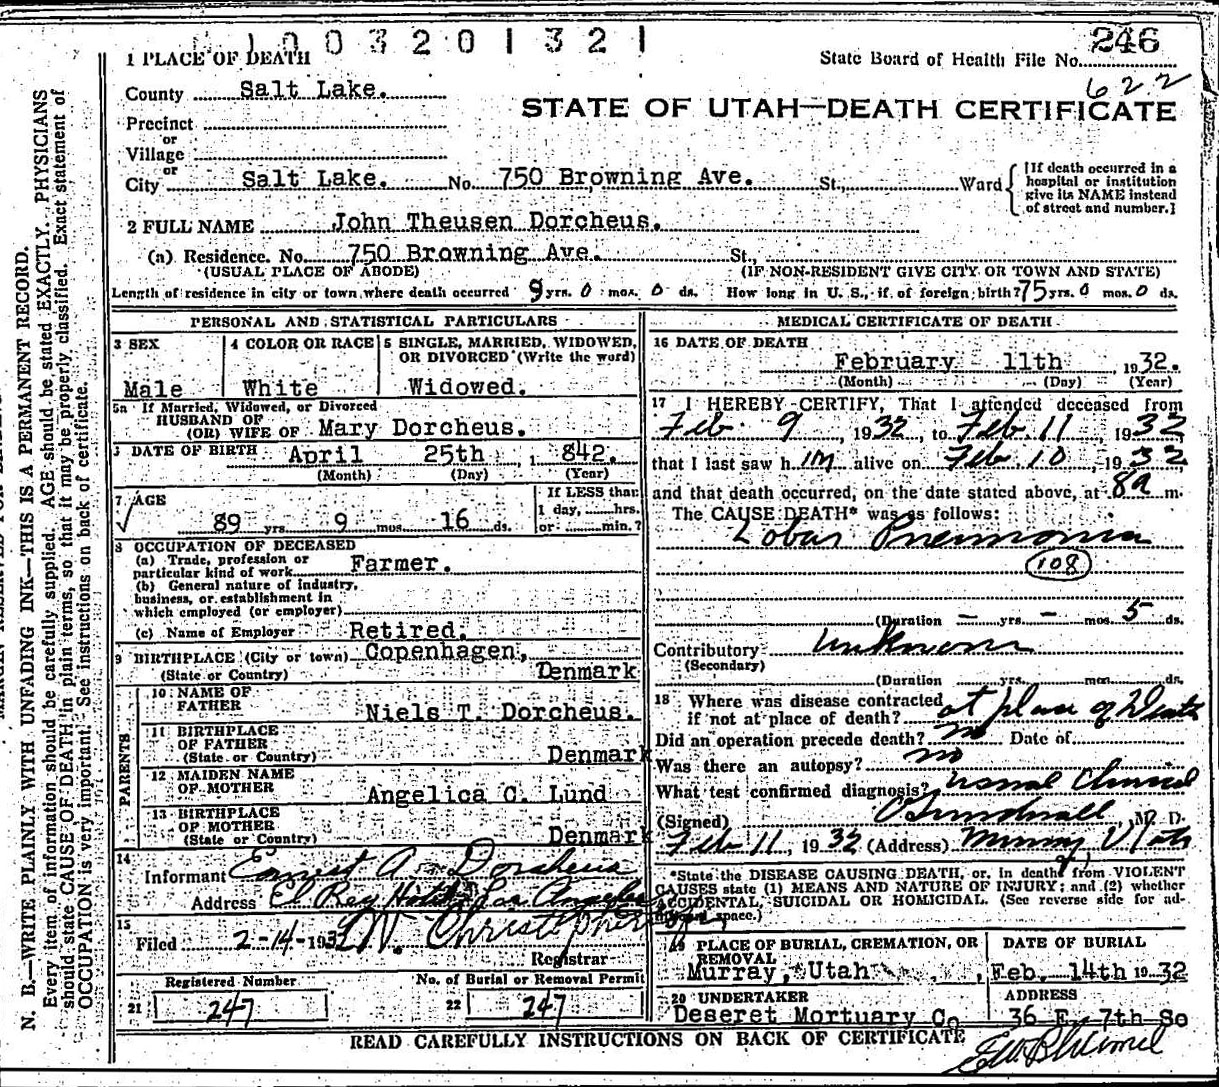 1003201321
1 PLACE OF DEATH
State Board of Health File No. 246
622
County Salt Lake.
STATE OF UTAH—DEATH CERTIFICATE
Precinct
or
Village
or
City Salt Lake. No. 750 Browning Ave. St., Ward
[If death occurred in a hospital or institution give its NAME instead of street and number.]
2 FULL NAME John Theusen Dorcheus.
(a) Residence. No. 750 Browning Ave. St.,
(USUAL PLACE OF ABODE) (IF NON-RESIDENT GIVE CITY OR TOWN AND STATE)
Length of residence in city or town where death occurred 9 yrs. 0 mos. 0 ds. How long in U. S., if of foreign birth? 75 yrs. 0 mos. 0 ds.
PERSONAL AND STATISTICAL PARTICULARS
3 SEX
Male
4 COLOR OR RACE
White
5 SINGLE, MARRIED, WIDOWED, OR DIVORCED (Write the word)
Widowed.
5a If Married, Widowed, or Divorced
HUSBAND OF
(OR) WIFE OF Mary Dorcheus.
DATE OF BIRTH April 25th, 1842.
(Month) (Day) (Year)
7 AGE
89 yrs. 9 mos. 16 ds.
If LESS than
1 day, hrs.
or min.?
8 OCCUPATION OF DECEASED
(a) Trade, profession or
particular kind of work Farmer.
(b) General nature of industry,
business, or establishment in
which employed (or employer)
(c) Name of Employer Retired.
9 BIRTHPLACE (City or town) Copenhagen,
(State or Country) Denmark
PARENTS
10 NAME OF
FATHER Niels T. Dorcheus.
11 BIRTHPLACE
OF FATHER
(State or Country) Denmark
12 MAIDEN NAME
OF MOTHER Angelica C. Lund
13 BIRTHPLACE
OF MOTHER
(State or Country) Denmark
14
Informant Ernest A. Dorcheus
Address El Rey Hotel Los Angeles
15
Filed 2-14-1932 Christopherson
Registrar
Registered Number
21 247
No. of Burial or Removal Permit
22 247
MEDICAL CERTIFICATE OF DEATH
16 DATE OF DEATH
February 11th, 1932.
(Month) (Day) (Year)
17 I HEREBY CERTIFY, That I attended deceased from
Feb. 9, 1932, to Feb. 11, 1932,
that I last saw him alive on Feb. 10, 1932
and that death occurred, on the date stated above, at 8a m.
The CAUSE DEATH* was as follows:
Lobar Pneumonia
108
(Duration — yrs. — mos. 5 ds.
Contributory unknown
(Secondary)
(Duration yrs. mos. ds.
18 Where was disease contracted
if not at place of death? at place of Death
Did an operation precede death? no Date of
Was there an autopsy? no
What test confirmed diagnosis? usual Clinical
(Signed) M. D.
Feb 11, 1932 (Address) Murray Utah
*State the DISEASE CAUSING DEATH, or, in death from VIOLENT
CAUSES state (1) MEANS AND NATURE OF INJURY; and (2) whether
ACCIDENTAL, SUICIDAL OR HOMICIDAL. (See reverse side for ad-
ditional space.)
19 PLACE OF BURIAL, CREMATION, OR
REMOVAL
Murray, Utah
DATE OF BURIAL
Feb. 14th 1932
20 UNDERTAKER
Deseret Mortuary Co
ADDRESS
36 E. 7th So
READ CAREFULLY INSTRUCTIONS ON BACK OF CERTIFICATE
N. B.—WRITE PLAINLY WITH UNFADING INK—THIS IS A PERMANENT RECORD.
Every item of information should be carefully supplied. AGE should be stated EXACTLY. PHYSICIANS
should state CAUSE OF DEATH in plain terms, so that it may be properly classified. Exact statement of
OCCUPATION is very important. See instructions on back of certificate.